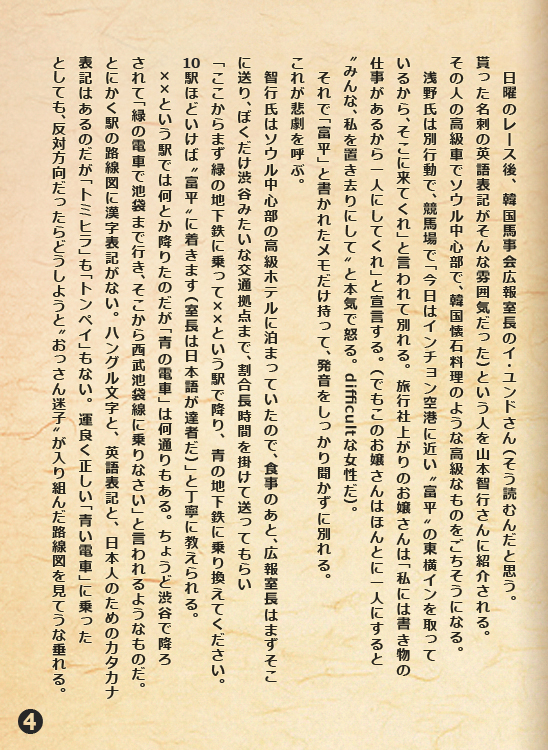 日曜のレース後、韓国馬事会広報室長のイ・ユンドさん(そう読むんだと思う。
貰った名刺の英語表記がそんな雰囲気だった)という人を山本智行さんに紹介される。
その人の高級車でソウル中心部で、韓国懐石料理のような高級なものをごちそうになる。
浅野氏は別行動で、競馬場で「今日はインチョン空港に近い〝富平〟の東横インを取って
いるから、そこに来てくれ」と言われて別れる。旅行社上がりのお嬢さんは「私には書き物の
仕事があるから一人にしてくれ」と宣言する。(でもこのお嬢さんはほんとに一人にすると
〝みんな、私を置き去りにして〟と本気で怒る。difficultな女性だ)。
それで「富平」と書かれたメモだけ持って、発音をしっかり聞かずに別れる。
これが悲劇を呼ぶ。
智行氏はソウル中心部の高級ホテルに泊まっていたので、食事のあと、広報室長はまずそこ
に送り、ぼくだけ渋谷みたいな交通拠点まで、割合長時間を掛けて送ってもらい
「ここからまず緑の地下鉄に乗って××という駅で降り、青の地下鉄に乗り換えてください。
10駅ほどいけば〝富平〟に着きます(室長は日本語が達者だ)」と丁寧に教えられる。
××という駅では何とか降りたのだが「青の電車」は何通りもある。ちょうど渋谷で降ろ
されて「緑の電車で池袋まで行き、そこから西武池袋線に乗りなさい」と言われるようなものだ。
とにかく駅の路線図に漢字表記がない。ハングル文字と、英語表記と、日本人のためのカタカナ
表記はあるのだが「トミヒラ」も「トンペイ」もない。運良く正しい「青い電車」に乗った
としても、反対方向だったらどうしようと〝おっさん迷子〟が入り組んだ路線図を見てうな垂れる。
4